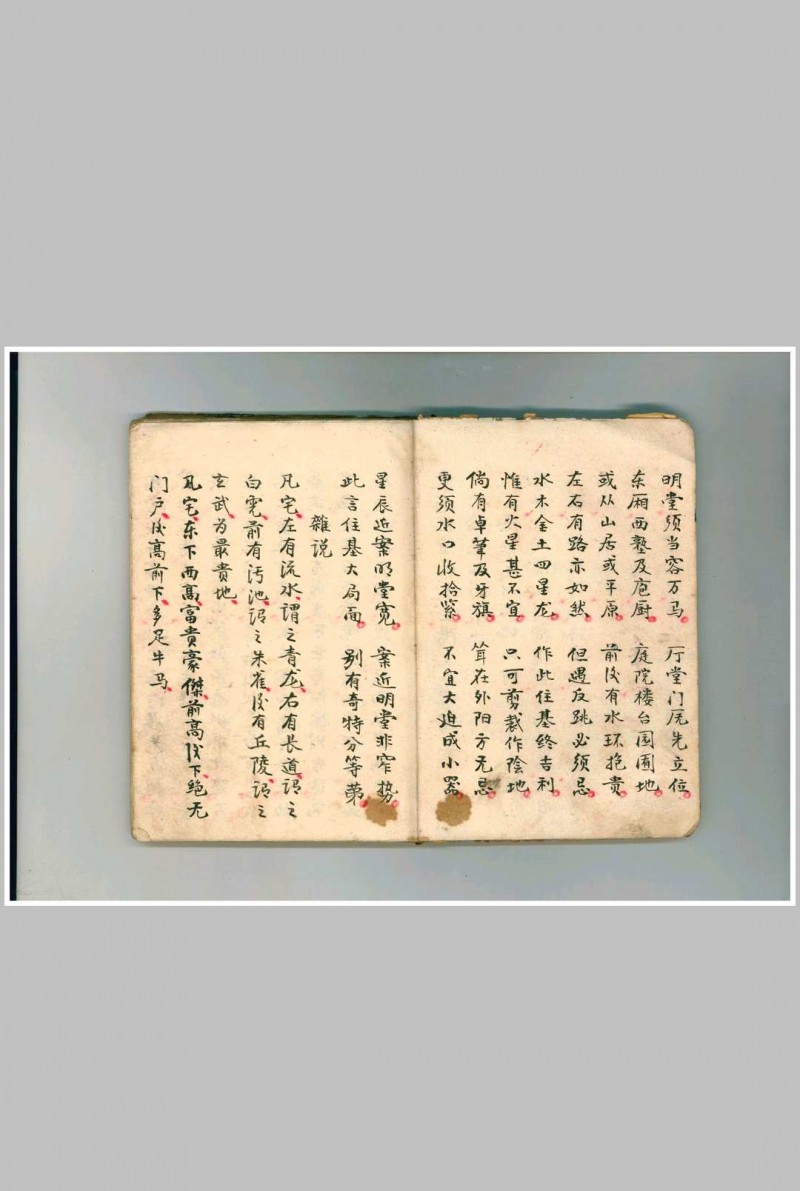 明堂须当容万马 厅堂门庑先立位
东厢西塾及庖厨 庭院楼台园囿地
或从山居或平原 前后有水环抱贵
左右有路亦如然 但遇反跳必须忌
水木金土四星龙 作此住基终吉利
惟有火星甚不宜 只可剪裁作陰地
倘有卓筆及牙旗 耸在外阳方无忌
更须水口收拾紧 不宜大迫成小器
星辰近案明堂宽 案近明堂非窄势
此言住基大局面 别有奇特分等第
雜说
凡宅左有流水谓之青龙右有長道谓之
白虎前有污池谓之朱雀后有丘陵谓之
玄武为最貴地
凡宅东下西高富貴豪傑前高后下绝无
门户后高前下多足牛马